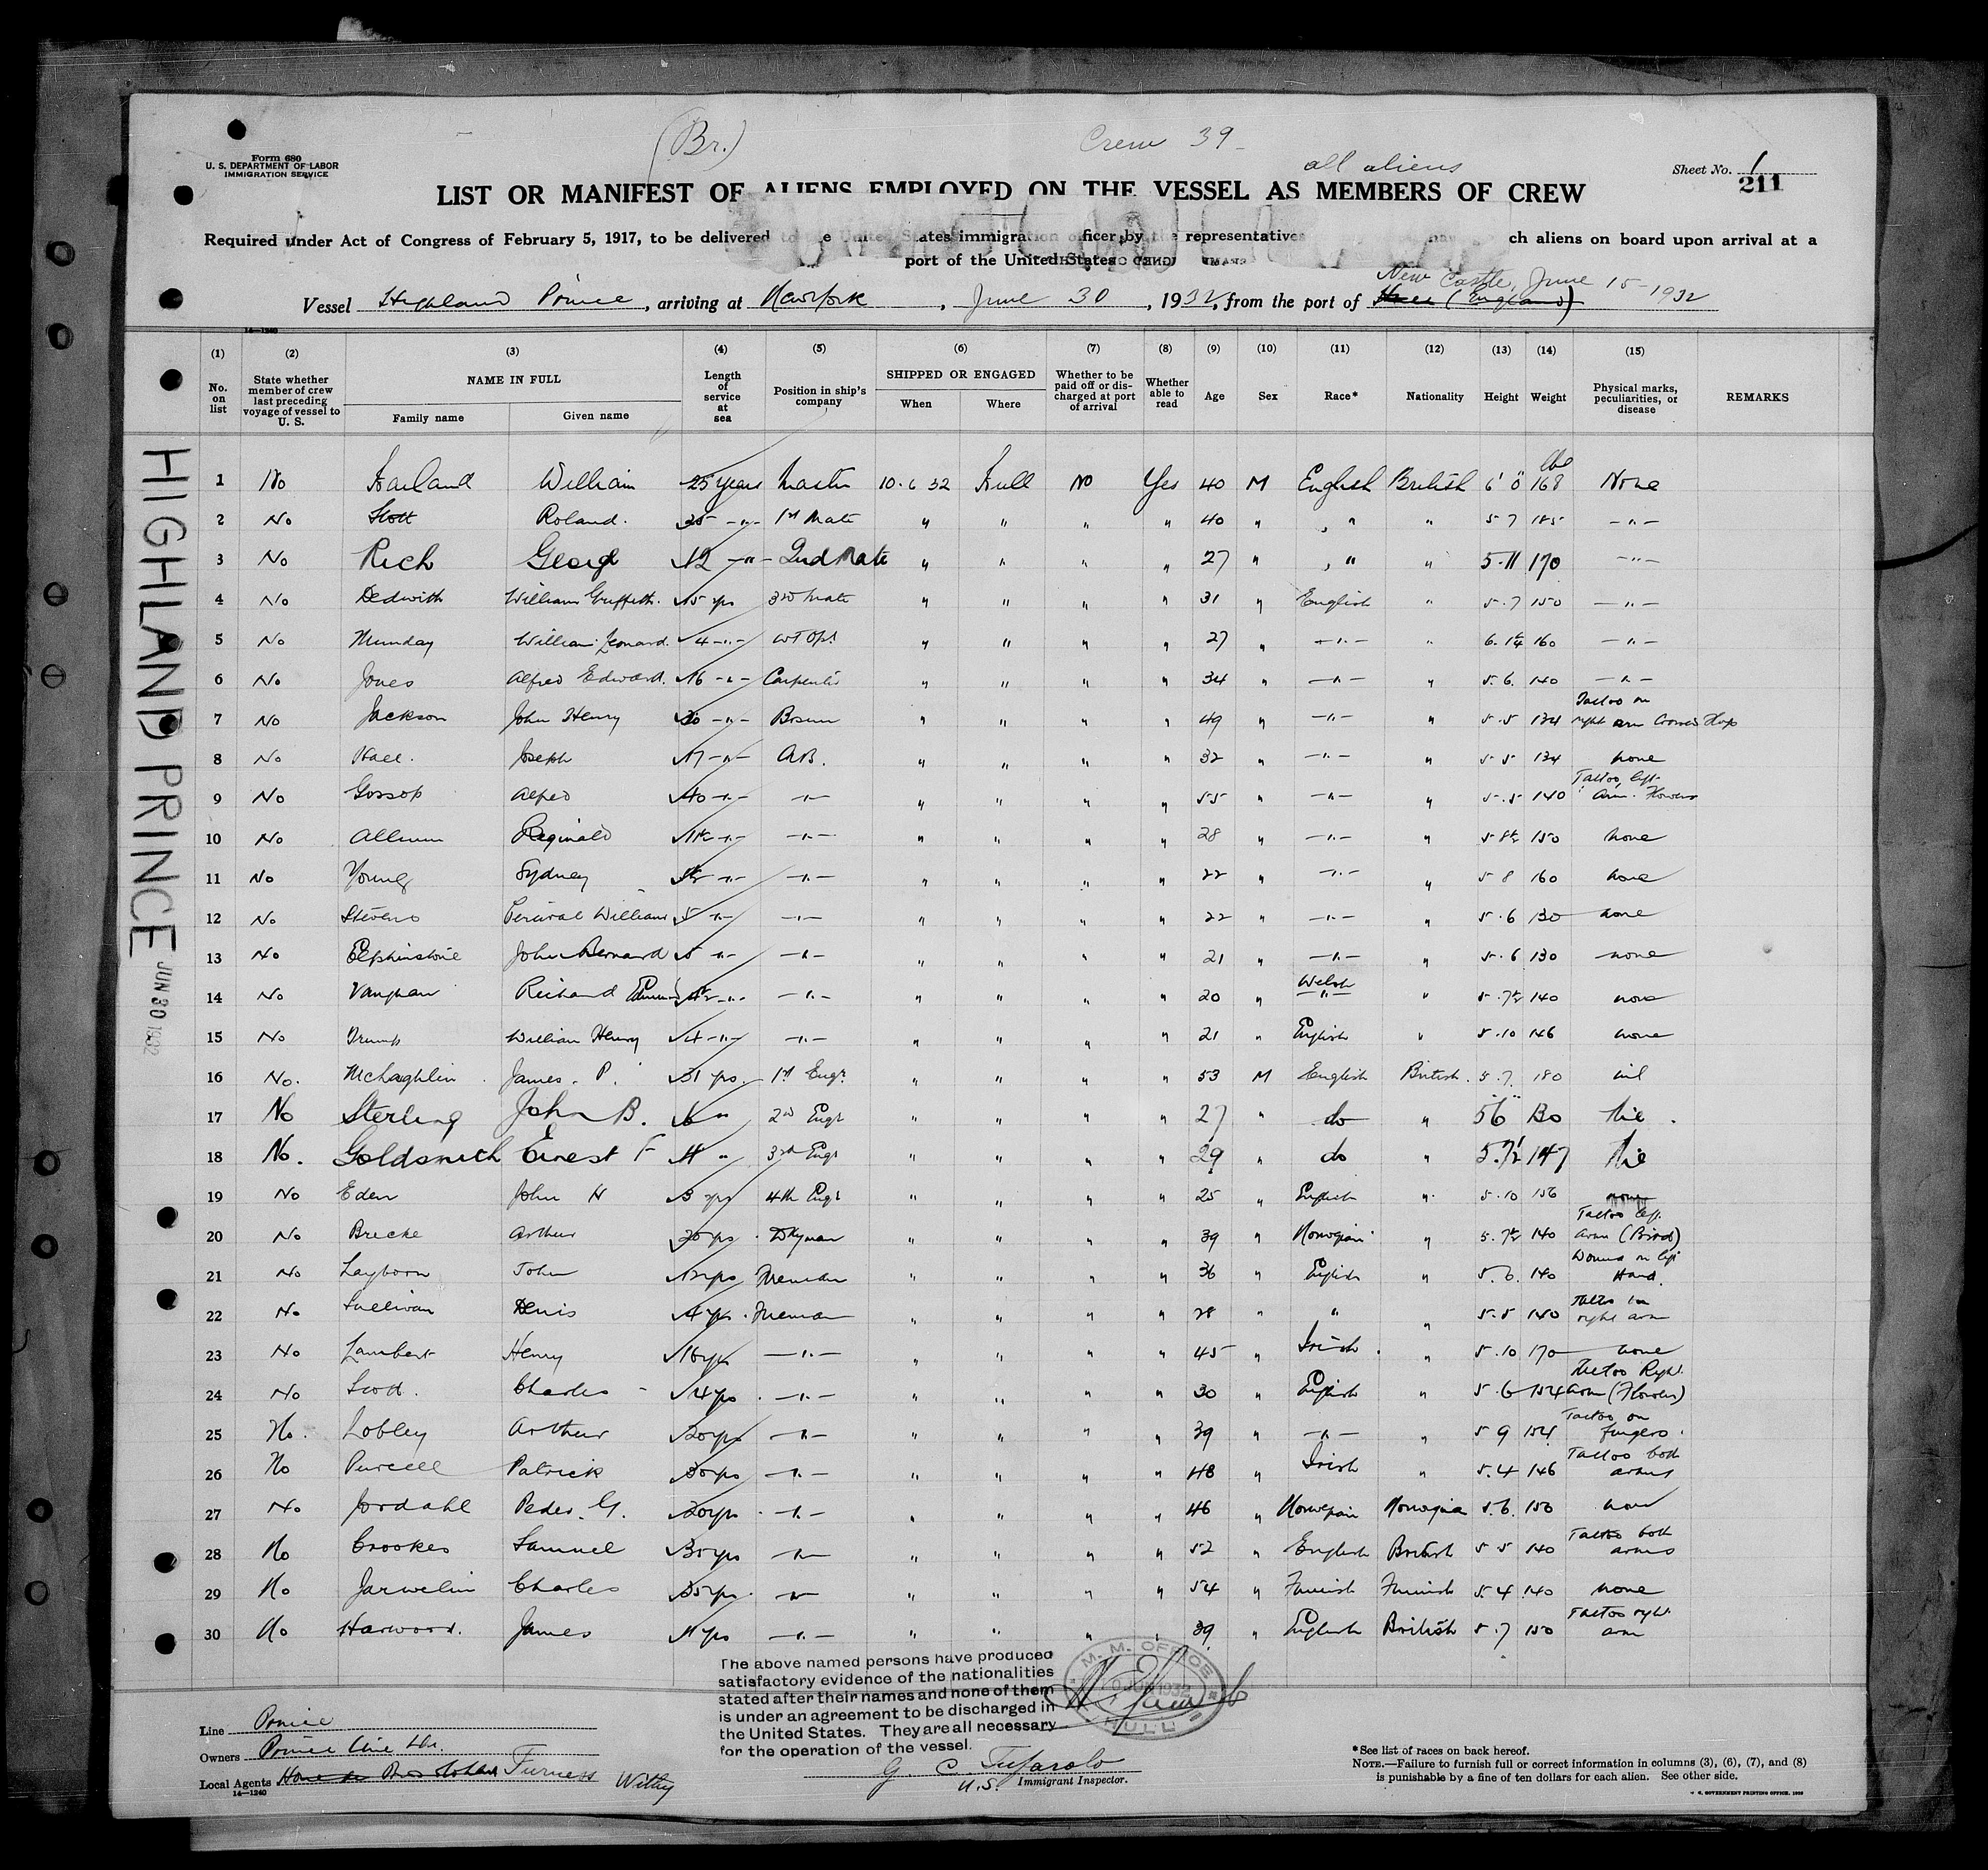 (Br.)
Crew 39
all aliens
Form 680
U. S. DEPARTMENT OF LABOR
IMMIGRATION SERVICE
Sheet No. 1
211
LIST OR MANIFEST OF ALIENS EMPLOYED ON THE VESSEL AS MEMBERS OF CREW
Required under Act of Congress of February 5, 1917, to be delivered to the United States immigration officer by the representatives ch aliens on board upon arrival at a
port of the United States
New Castle, June 15-1932
Vessel Highland Prince, arriving at New York, June 30, 1932, from the port of Hull (England)
14—1240
(1) (2) (3) (4) (5) (6) (7) (8) (9) (10) (11) (12) (13) (14) (15)
No. on list
State whether member of crew last preceding voyage of vessel to U. S.
NAME IN FULL
Family name Given name
Length of service at sea
Position in ship's company
SHIPPED OR ENGAGED
When Where
Whether to be paid off or discharged at port of arrival
Whether able to read
Age Sex Race* Nationality Height Weight
Physical marks, peculiarities, or disease
REMARKS
HIGHLAND PRINCE JUN 30 1932
1 No Harland William 25 years Master 10.6.32 Hull No Yes 40 M English British 6'0" 168 lbs None
2 No Stott Roland. 25 -"- 1st Mate " " " " 40 " " " 5 7 185 -"-
3 No Rich George 12 -"- 2nd Mate " " " " 27 " " " 5.11 170 -"-
4 No Dedwith William Griffith. 15 yrs 3rd Mate " " " " 31 " English " 5.7 150 -"-
5 No Munday William Leonard. 4 -"- WT Opr " " " " 27 " -"- " 6.1½ 160 -"-
6 No Jones Alfred Edward. 16 -"- Carpenter " " " " 34 " -"- " 5.6. 140 -"-
7 No Jackson John Henry 30 -"- Bosun " " " " 49 " -"- " 5.5 134 Tattoo on right arm Crossed Flags
8 No Hall. Joseph 17 -"- A.B. " " " " 32 " -"- " 5.5 134 none
9 No Gossop Alfred 40 -"- -"- " " " " 55 " -"- " 5.5 140 Tattoo left Arm. Flowers
10 No Allum Reginald -"- -"- " " " " 28 " -"- " 5 8½ 150 none
11 No Young Sydney -"- -"- " " " " 22 " -"- " 5 8 160 none
12 No Stevens Percival William 5 -"- -"- " " " " 22 " -"- " 5.6 130 none
13 No Elphinstone John Bernard 5 -"- -"- " " " " 21 " -"- " 5.6 130 none
14 No Vaughan Richard Edmund -"- -"- " " " " 20 " Welsh " 5.7½ 140 none
15 No Trump William Henry 4 -"- -"- " " " " 21 " English " 5.10 146 none
16 No. McLaghlin James. P. 31 yrs. 1st Engr. " " " " 53 M English British. 5.7. 180 nil
17 No Sterling John B. 6 " 2nd Engr " " " " 27 " do " 5'6" 130 Nil.
18 No. Goldsmith Ernest F " 3rd Engr " " " " 29 " do " 5.7½ 147 Nil
19 No Eden John H 3 yrs 4th Engr " " " " 25 " English " 5.10 156 none
20 No Brecke Arthur 20 yrs. Dkyman " " " " 39 " Norwegian " 5.7½ 140 Tattoo left arm (Bird)
21 No Layborn John 12 yrs Fireman " " " " 36 " English " 5.6. 140 Wound on left Hand.
22 No Sullivan Denis 4 yrs. Fireman " " " " 28 " " " 5.5 140 Tattoo on right arm
23 No Lambert Henry 16 yrs -"- " " " " 45 " Irish. " 5.10 170 none
24 No Scott. Charles 14 yrs. -"- " " " " 30 " English " 5.6 154 Tattoo Right arm (Flowers)
25 No. Lobley Arthur 20 yrs -"- " " " " 39 " -"- " 5 9 154 Tattoo on fingers.
26 No Purcell Patrick 30 yrs -"- " " " " 48 " Irish " 5.4 146 Tattoo both arms
27 No Jordahl Peder. G. 20 yrs. -"- " " " " 46 " Norwegian Norwegian 5.6. 150 none
28 No Crookes Samuel 35 yrs -"- " " " " 52 " English British 5.5 140 Tattoo both arms
29 No Jarvelin Charles 35 yrs. -"- " " " " 54 " Finnish Finnish 5.4 140 none
30 No Harwood. James 11 yrs -"- " " " " 39 " English British 5.7 150 Tattoo right arm
The above named persons have produced
satisfactory evidence of the nationalities
stated after their names and none of them
is under an agreement to be discharged in
the United States. They are all necessary
for the operation of the vessel.
M. M. OFFICE
JUN 1932
HULL
Line Prince
Owners Prince Line Ltd.
Local Agents Furness Withy
14—1240
U.S. Immigrant Inspector.
*See list of races on back hereof.
NOTE.—Failure to furnish full or correct information in columns (3), (6), (7), and (8)
is punishable by a fine of ten dollars for each alien. See other side.
GOVERNMENT PRINTING OFFICE